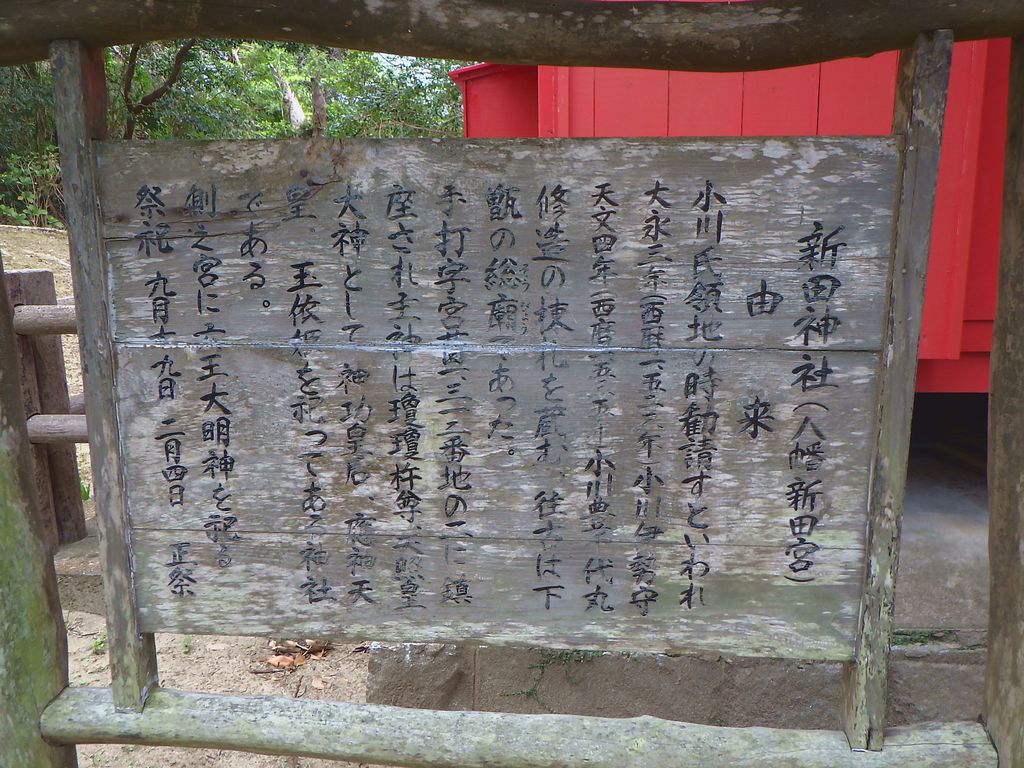 新田神社(八幡新田宮)
由来
小川氏領地の時勧請すといわれ
大永二年(西暦一五二二年 小川伊勢守
天文四年(西暦一五三五 小川 代丸
修造の棟札を蔵む、往古は下
甑の総廟であった。
手打字 三三二番地の二に鎮
座され主神は瓊瓊杵尊、天照皇
大神として 神功皇后、應神天
皇、玉依姫を祀ってある神社
である。
剣之宮に 王大明神を祀る
祭祀 九月 九日 二月四日 正祭